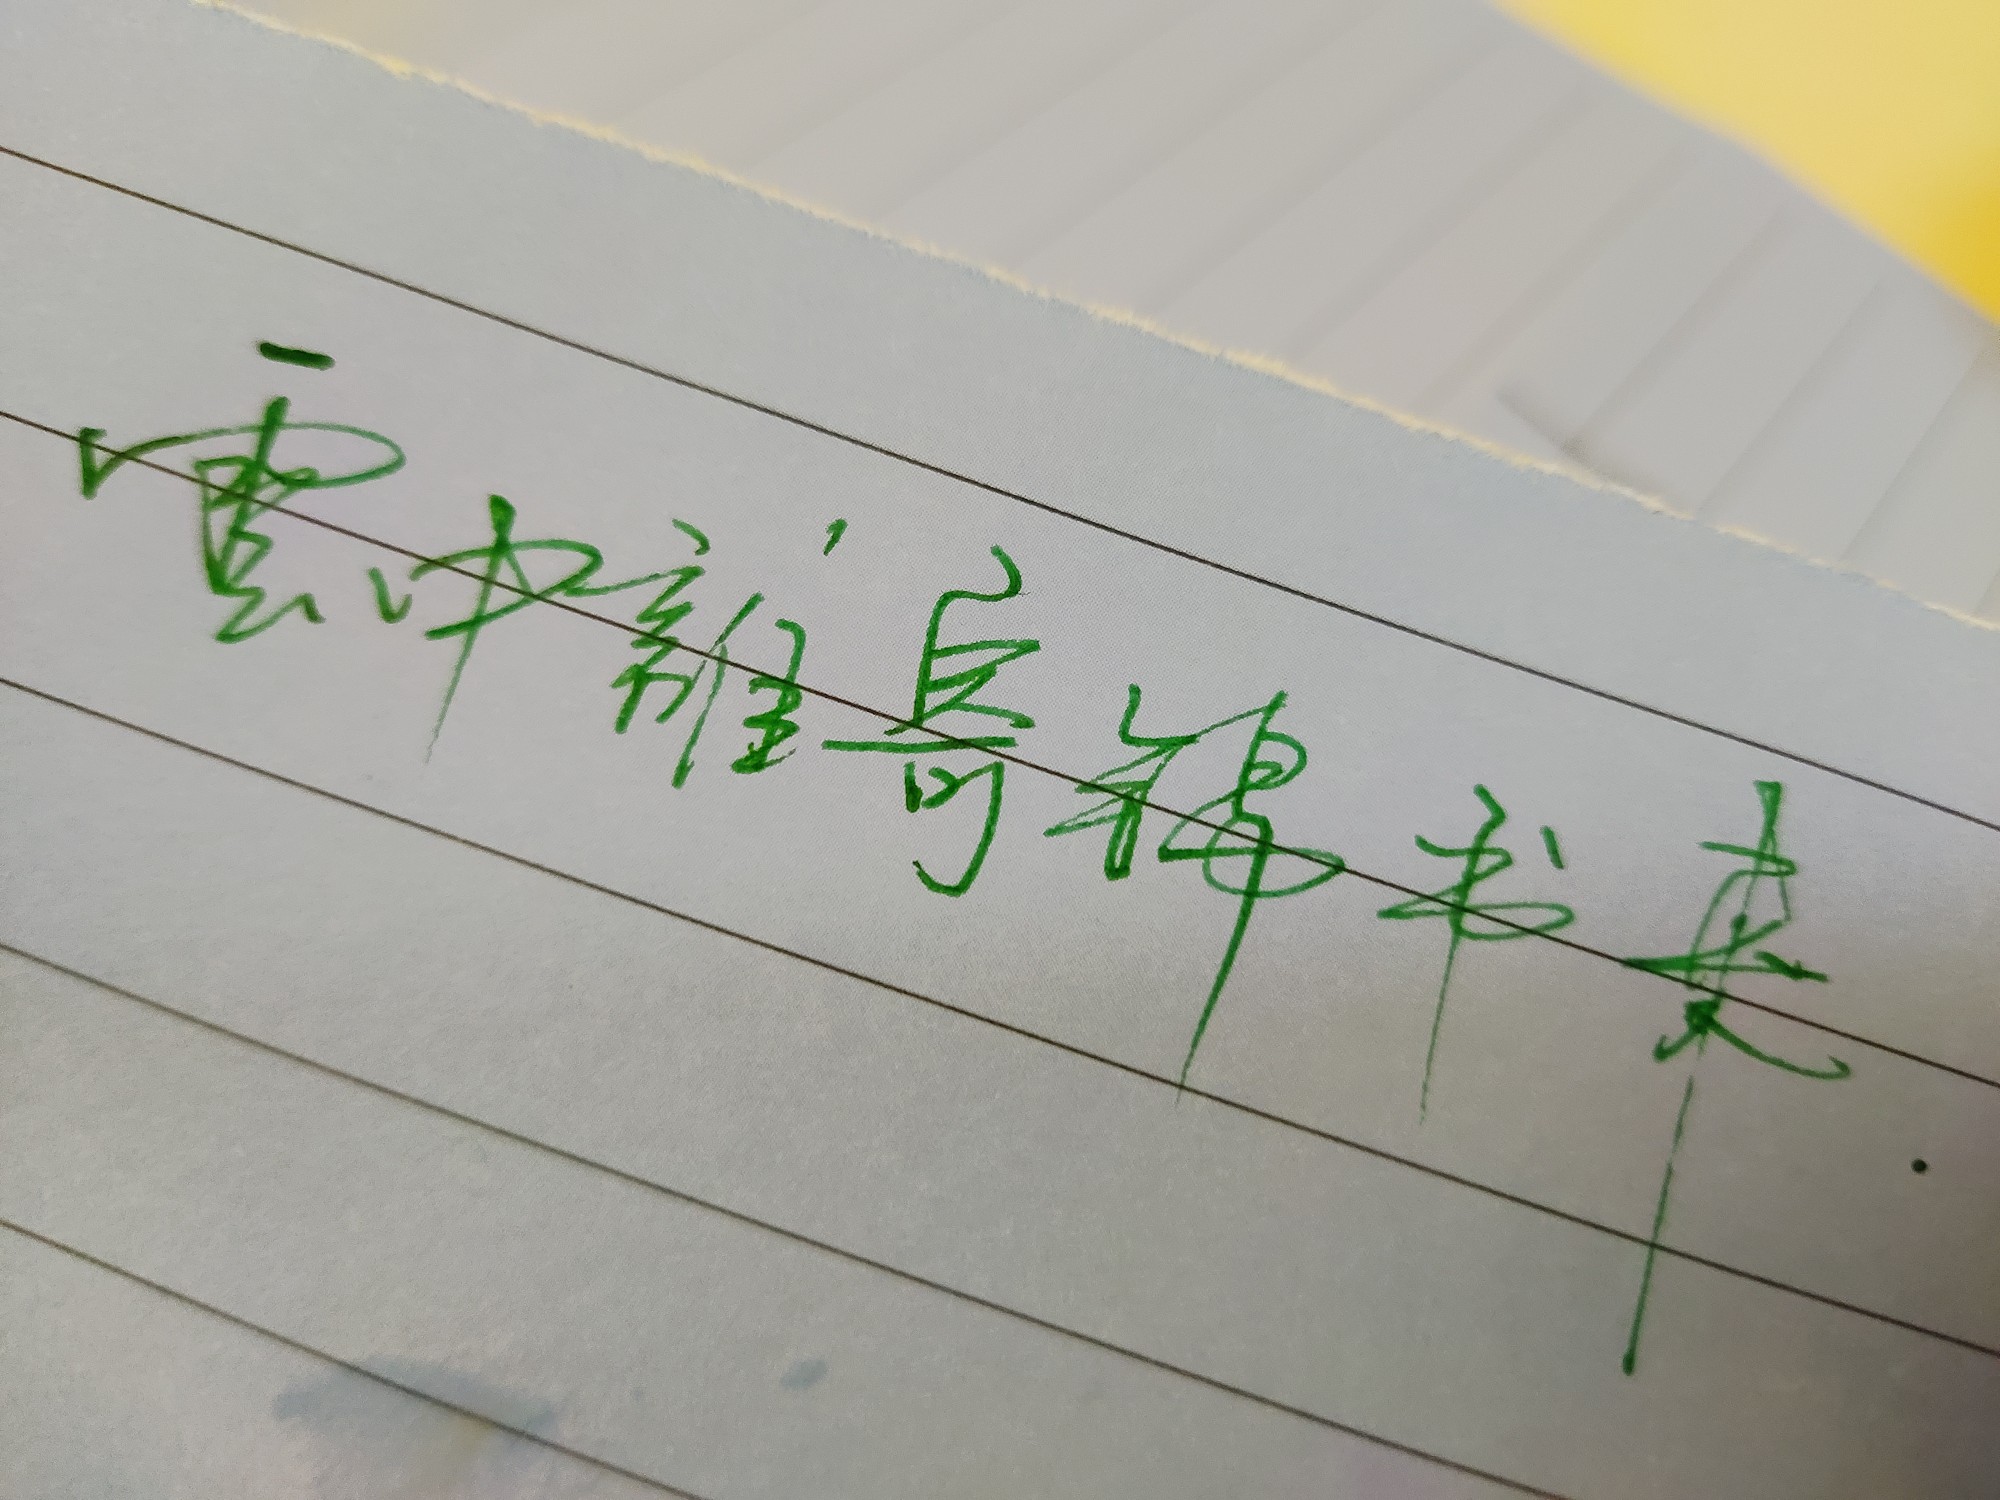 雲中誰寄锦书来